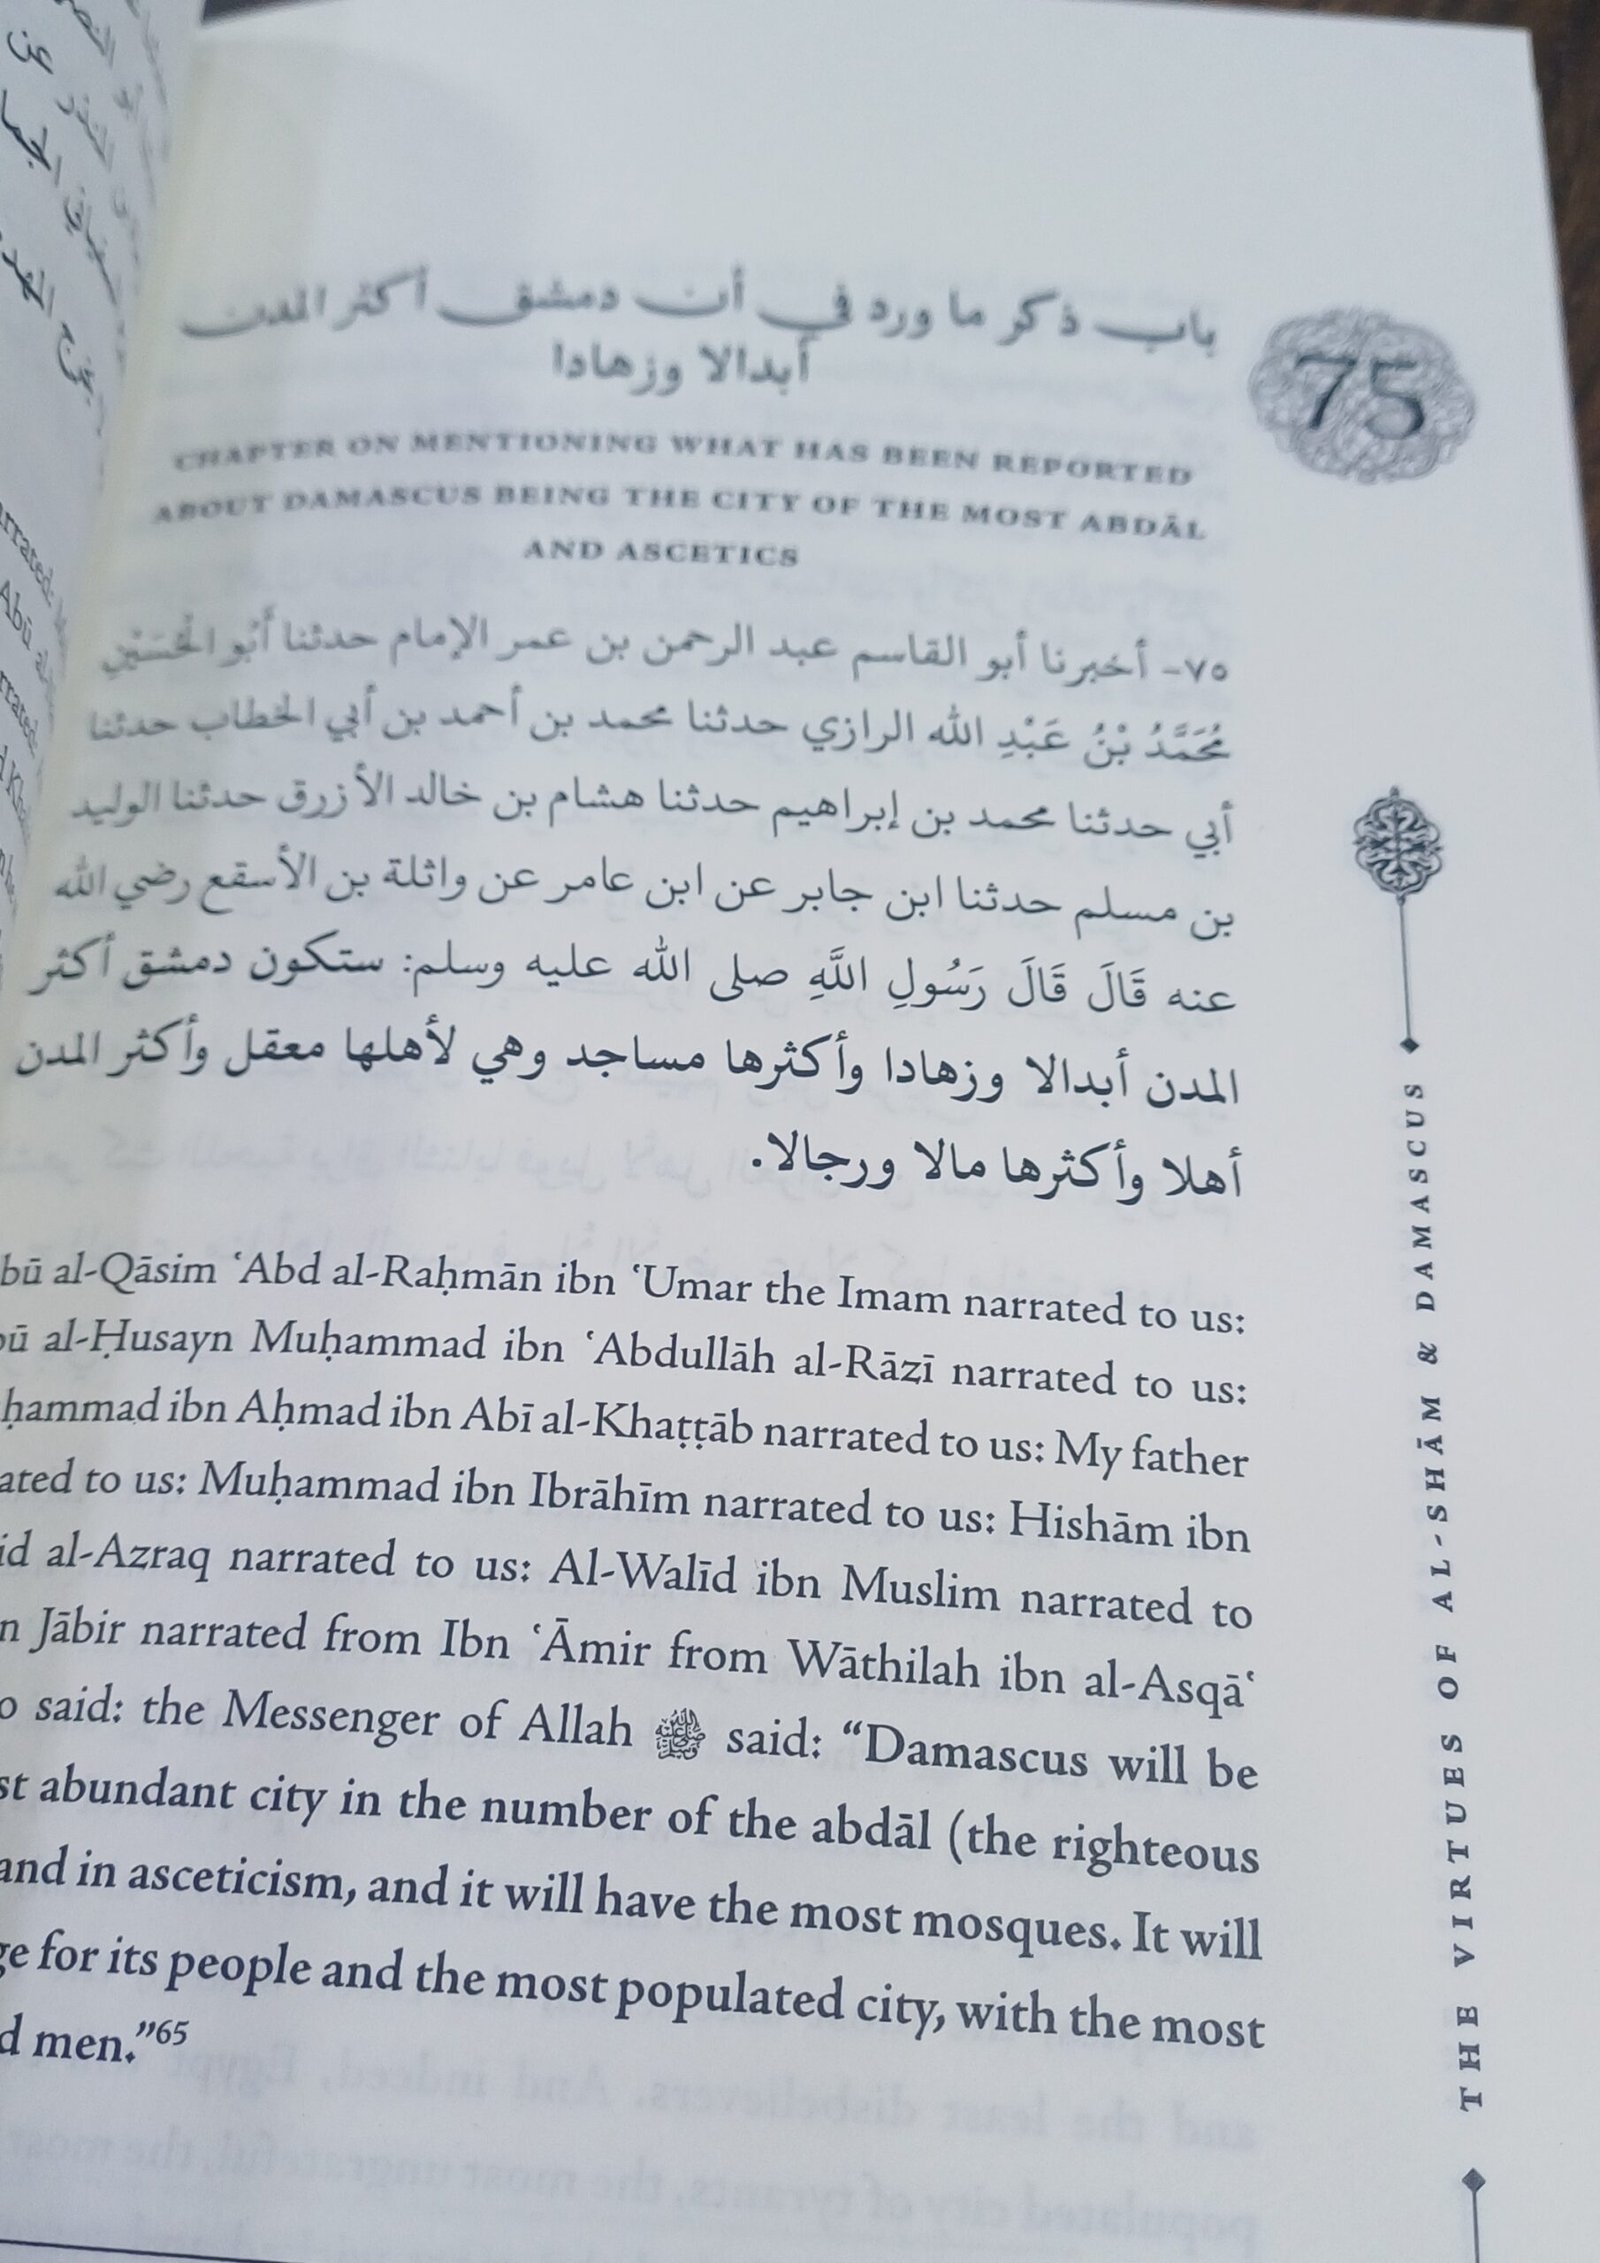 باب ذكر ما ورد في أن دمشق أكثر المدن
أبدالا وزهادا
75
CHAPTER ON MENTIONING WHAT HAS BEEN REPORTED
ABOUT DAMASCUS BEING THE CITY OF THE MOST ABDĀL
AND ASCETICS
٧٥- أخبرنا أبو القاسم عبد الرحمن بن عمر الإمام حدثنا أَبُو الْحُسَيْنِ
مُحَمَّدُ بْنُ عَبْدِ الله الرازي حدثنا محمد بن أحمد بن أبي الخطاب حدثنا
أبي حدثنا محمد بن إبراهيم حدثنا هشام بن خالد الأزرق حدثنا الوليد
بن مسلم حدثنا ابن جابر عن ابن عامر عن واثلة بن الأسقع رضي الله
عنه قَالَ قَالَ رَسُولِ اللَّهِ صلى الله عليه وسلم: ستكون دمشق أكثر
المدن أبدالا وزهادا وأكثرها مساجد وهي لأهلها معقل وأكثر المدن
أهلا وأكثرها مالا ورجالا.
al-Qāsim ʿAbd al-Raḥmān ibn ʿUmar the Imam narrated to us:
al-Ḥusayn Muḥammad ibn ʿAbdullāh al-Rāzī narrated to us:
ibn Aḥmad ibn Abī al-Khaṭṭāb narrated to us: My father
to us: Muḥammad ibn Ibrāhīm narrated to us: Hishām ibn
al-Azraq narrated to us: Al-Walīd ibn Muslim narrated to
Jābir narrated from Ibn ʿĀmir from Wāthilah ibn al-Asqāʿ
said: the Messenger of Allah ﷺ said: “Damascus will be
abundant city in the number of the abdāl (the righteous
and in asceticism, and it will have the most mosques. It will
for its people and the most populated city, with the most
men.”65
THE VIRTUES OF AL-SHĀM & DAMASCUS